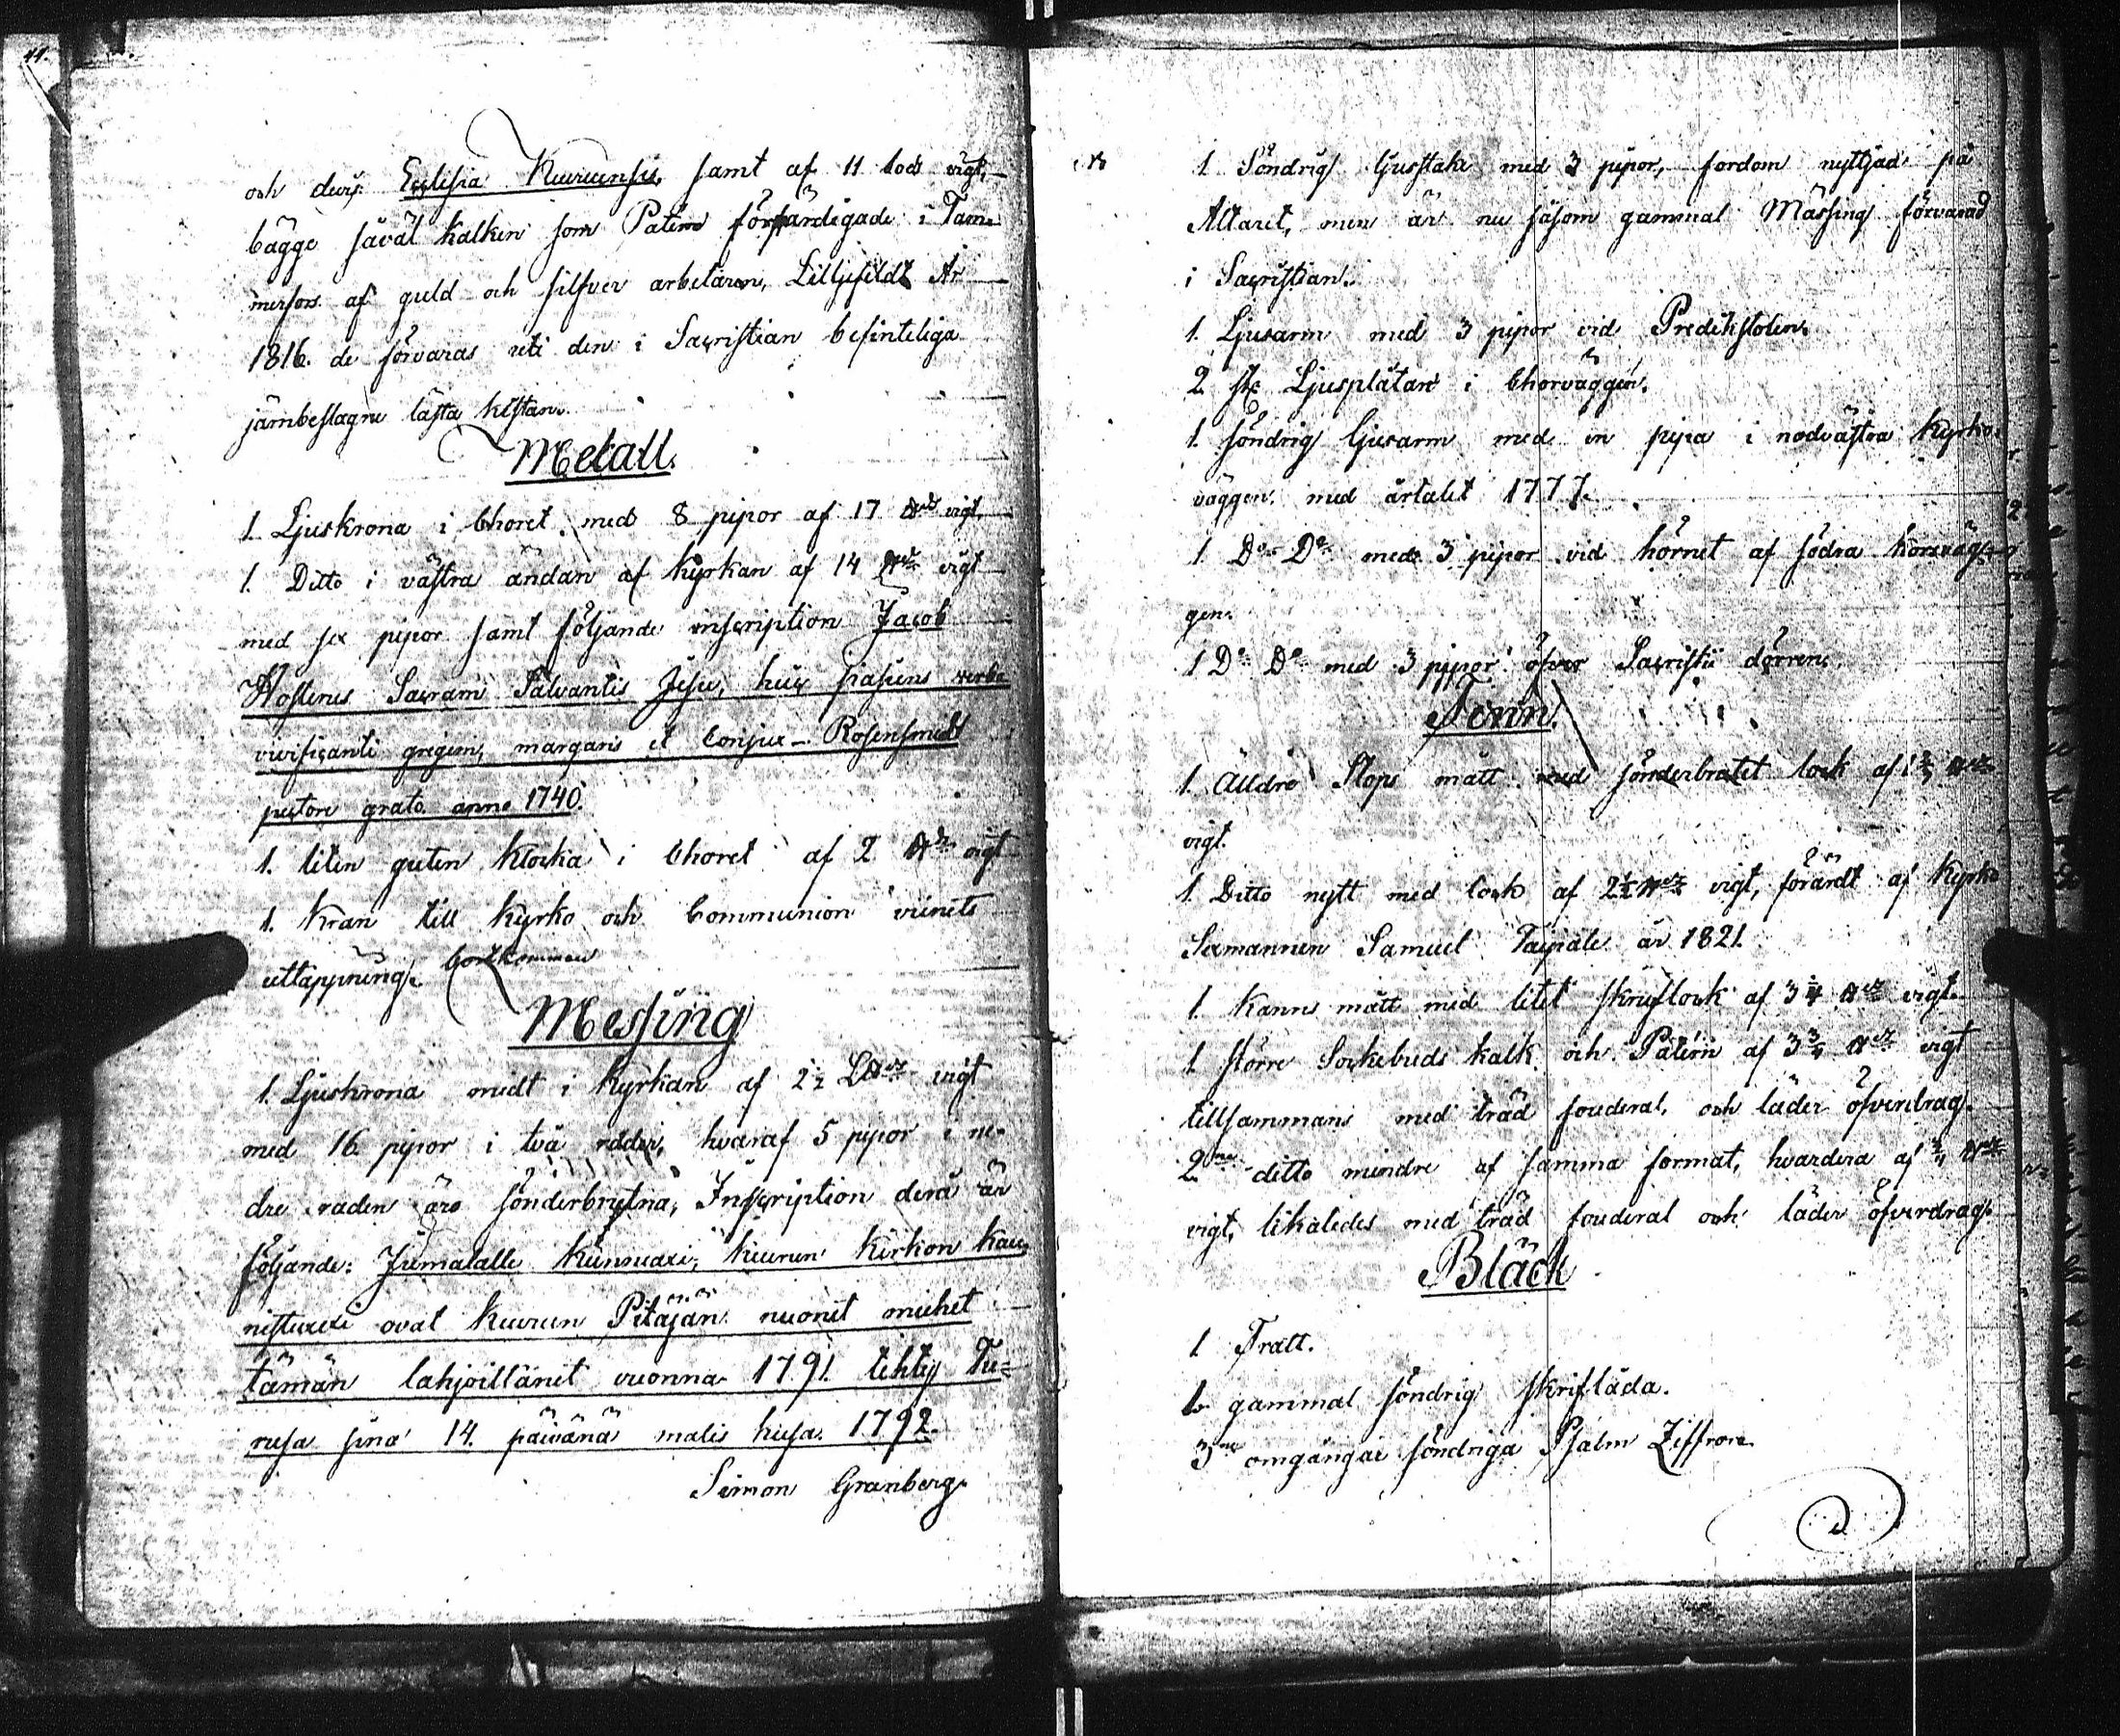 44.
och derj. Ecclesia Kuruensis, samt af 11 lods vigt,
bägge såväl Kalken som Paten förfärdigade i Tam-
merfors af guld och silfver arbetaren, Lilljefeldt År
1816. de förvaras uti den i Sacristian befinteliga
järnbeslagne låsta kistan.
Metall.
1. Ljuskrona i Choret med 8 pipor af 17 ℔ vigt.
1. Ditto i västra ändan af kyrkan af 14 ℔ vigt
med sex pipor samt följande inscription Jacob
Sacram Salvantis Jesu, huic verba
vivificanti gregem, margari et Conjux - Rosensmedt
pectore grato anno 1740.
1. liten guten klocka i Choret af 2 ℔ vigt
1. Kran till Kyrko och Communion vinets
uttappning. bortkommen
Messing
1. Ljuskrona midt i Kyrkan af 2½ L℔ vigt
med 16 pipor i två rader, hvaraf 5 pipor i ne-
dre raden äro sönderbrutna, Inscription derå är
följande: Jumalalle kunniaxi, kuurun kirkon kau-
nistuxexi ovat kuurun Pitäjän nuoret miehet
tämän lahjoittanet vuonna 1791. tehty Tu-
rusa sinä 14. päivänä malis kusa. 1792.
Simon Granberg.
1 Söndrig ljusstake med 3 pipor, fordom nyttjad på
Altaret, men är nu såsom gammal Mässing förvarad
i Sacristian.
1. Ljusarm med 3 pipor vid Predikstolen.
2 st. Ljusplåtar i Chorväggen.
1. söndrig ljusarm med en pipa i nordvästra Kyrko-
väggen med årtalet 1777.
1 D:o D:o med 3 pipor vid hörnet af södra korsväg-
gen.
1 D:o D:o med 3 pipor öfver Sacristii dörren.
Tenn.
1. Älldre Stops mått med sönderbrutet lock af ℔
vigt.
1. Ditto nytt med lock af 2½ ℔ vigt, förärdt af Kyrko
Sexmannen Samuel Taipale år 1821.
1. Kanns mått med litet skruflock af 3¼ ℔ vigt.
1 större Sockebuds kalk och Paten af 3¾ ℔ vigt
tillsammans med träd fouderal, och läder öfverdrag.
2:ne ditto mindre af samma format, hvardera af ¾ ℔
vigt, likaledes med träd fouderal och läder öfverdrag.
Bläck
1 Tratt.
1. gammal söndrig skriflåda.
3:ne omgångar söndriga Psalm Ziffror.